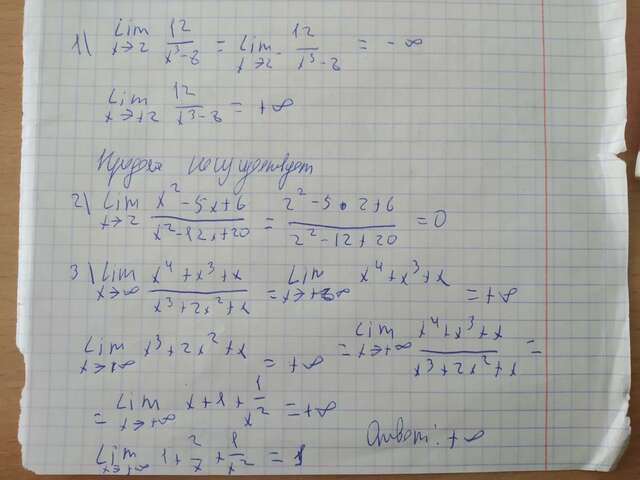 1) lim x→2 12/(x³-8) = lim x→2- 12/(x³-8) = -∞
lim x→+2 12/(x³-8) = +∞
Предел не существует
2) lim x→2 (x²-5x+6)/(x²-12x+20) = (2²-5•2+6)/(2²-12+20) = 0
3) lim x→∞ (x⁴+x³+x)/(x³+2x²+x) = lim x→+∞ x⁴+x³+x = +∞
lim x→∞ x³+2x²+x = +∞ = lim x→+∞ (x⁴+x³+x)/(x³+2x²+x) =
= lim x→+∞ x+1+1/x² = +∞
lim x→+∞ 1+2/x+1/x² = 1 Ответ: +∞